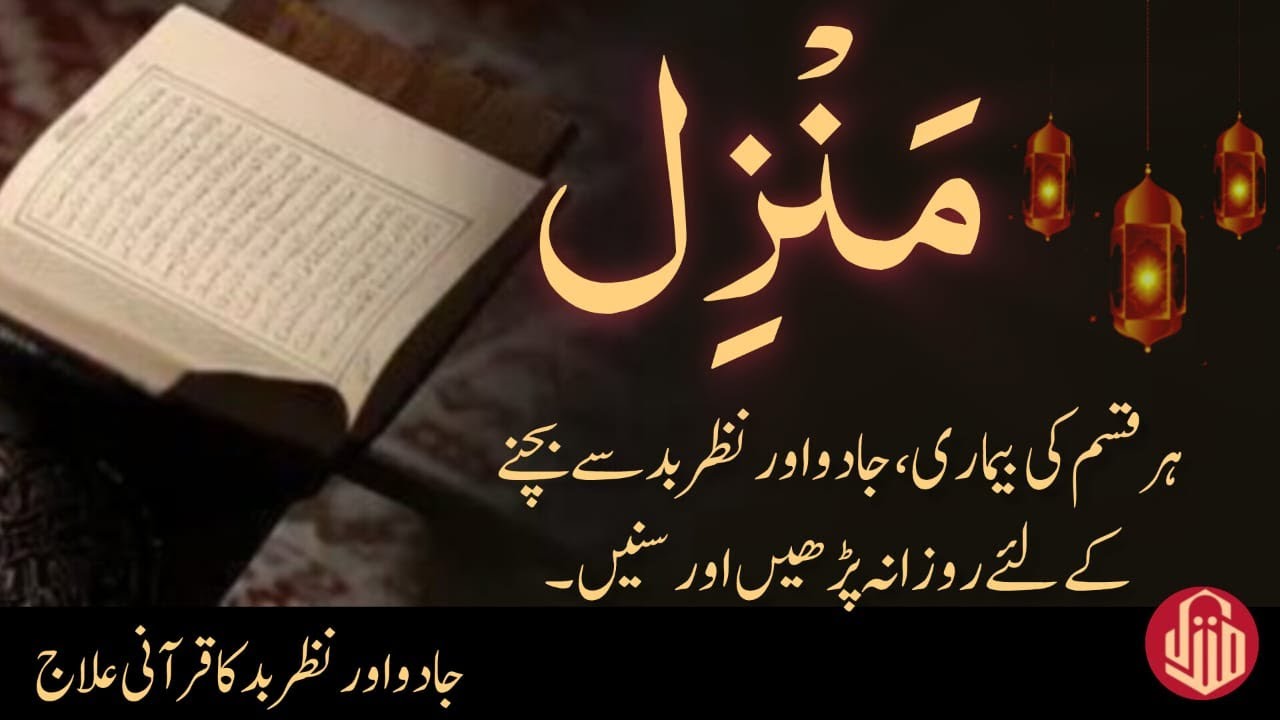 مَنْزِل
ہر قسم کی بیماری، جادو اور نظر بد سے بچنے
کے لئے روزانہ پڑھیں اور سنیں۔
جادو اور نظر بد کا قرآنی علاج
منزل